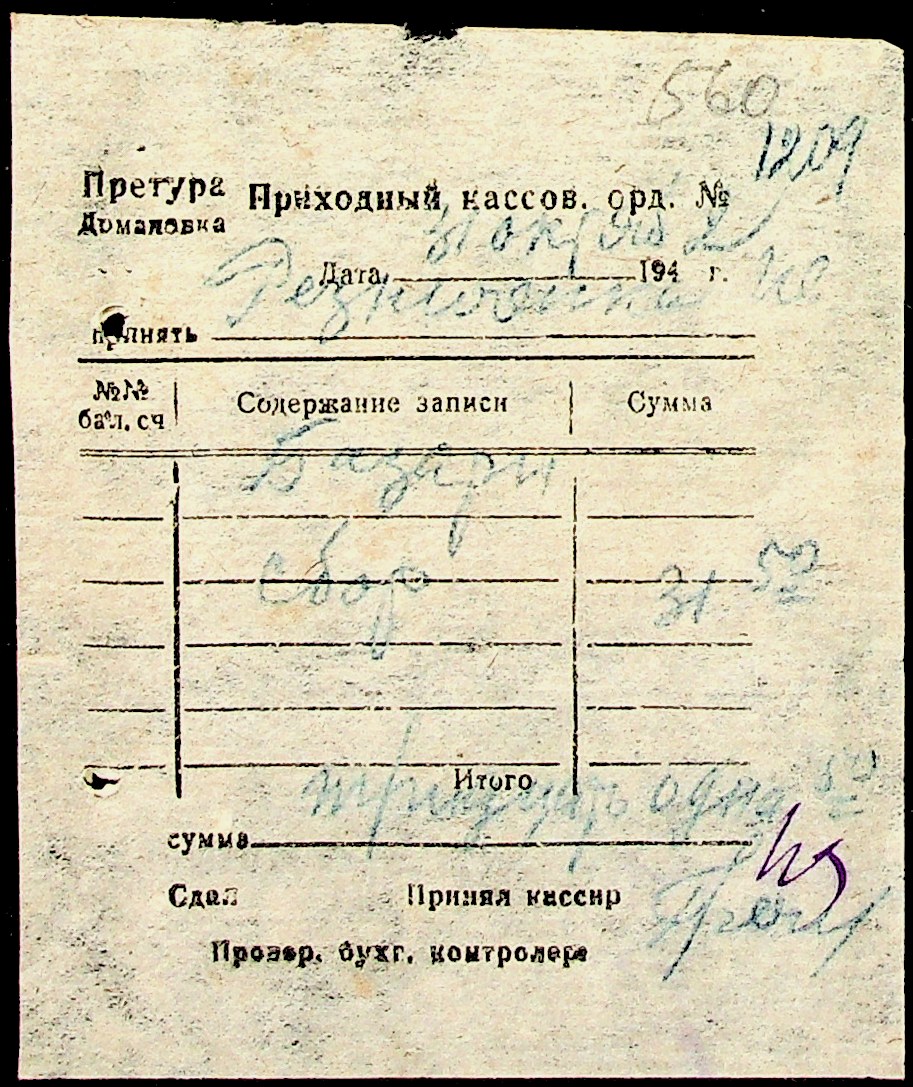 560
1209
Претура Приходный кассов. орд. №
Домановка
31 окт 2
Дата 194 г.
Резниченка
принять
№№ бал. сч Содержание записи Сумма
Базарн
сбор 31 50
Итого
тридцать одна 50
сумма
Сдал Принял кассир
Провер. бухг. контролере